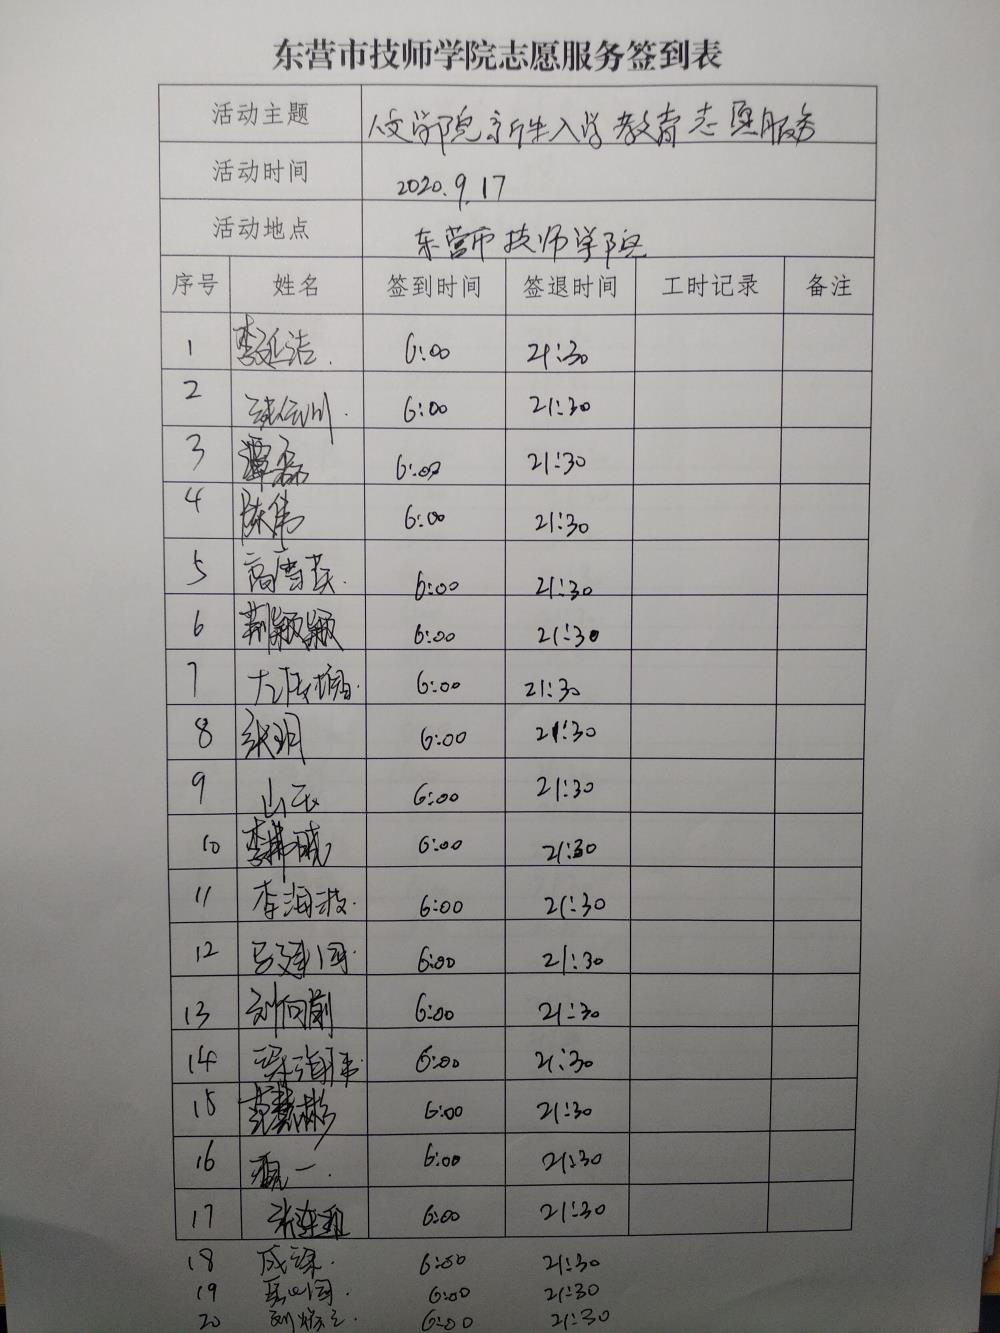 东营市技师学院志愿服务签到表
活动主题 人文学院新生入学教育志愿服务
活动时间 2020.9.17
活动地点 东营市技师学院
序号 姓名 签到时间 签退时间 工时记录 备注
1 李延洁. 6:00 21:30
2 6:00 21:30
3 谭磊 6:00 21:30
4 陈伟 6:00 21:30
5 高雪 6:00 21:30
6 荆颖颖 6:00 21:30
7 6:00 21:30
8 张玥 6:00 21:30
9 山玉 6:00 21:30
10 李 晓 6:00 21:30
11 李海波. 6:00 21:30
12 马建国. 6:00 21:30
13 刘向前 6:00 21:30
14 梁海 6:00 21:30
15 慧彬 6:00 21:30
16 一. 6:00 21:30
17 张连 6:00 21:30
18 成 6:00 21:30
19 6:00 21:30
20 刘 6:00 21:30